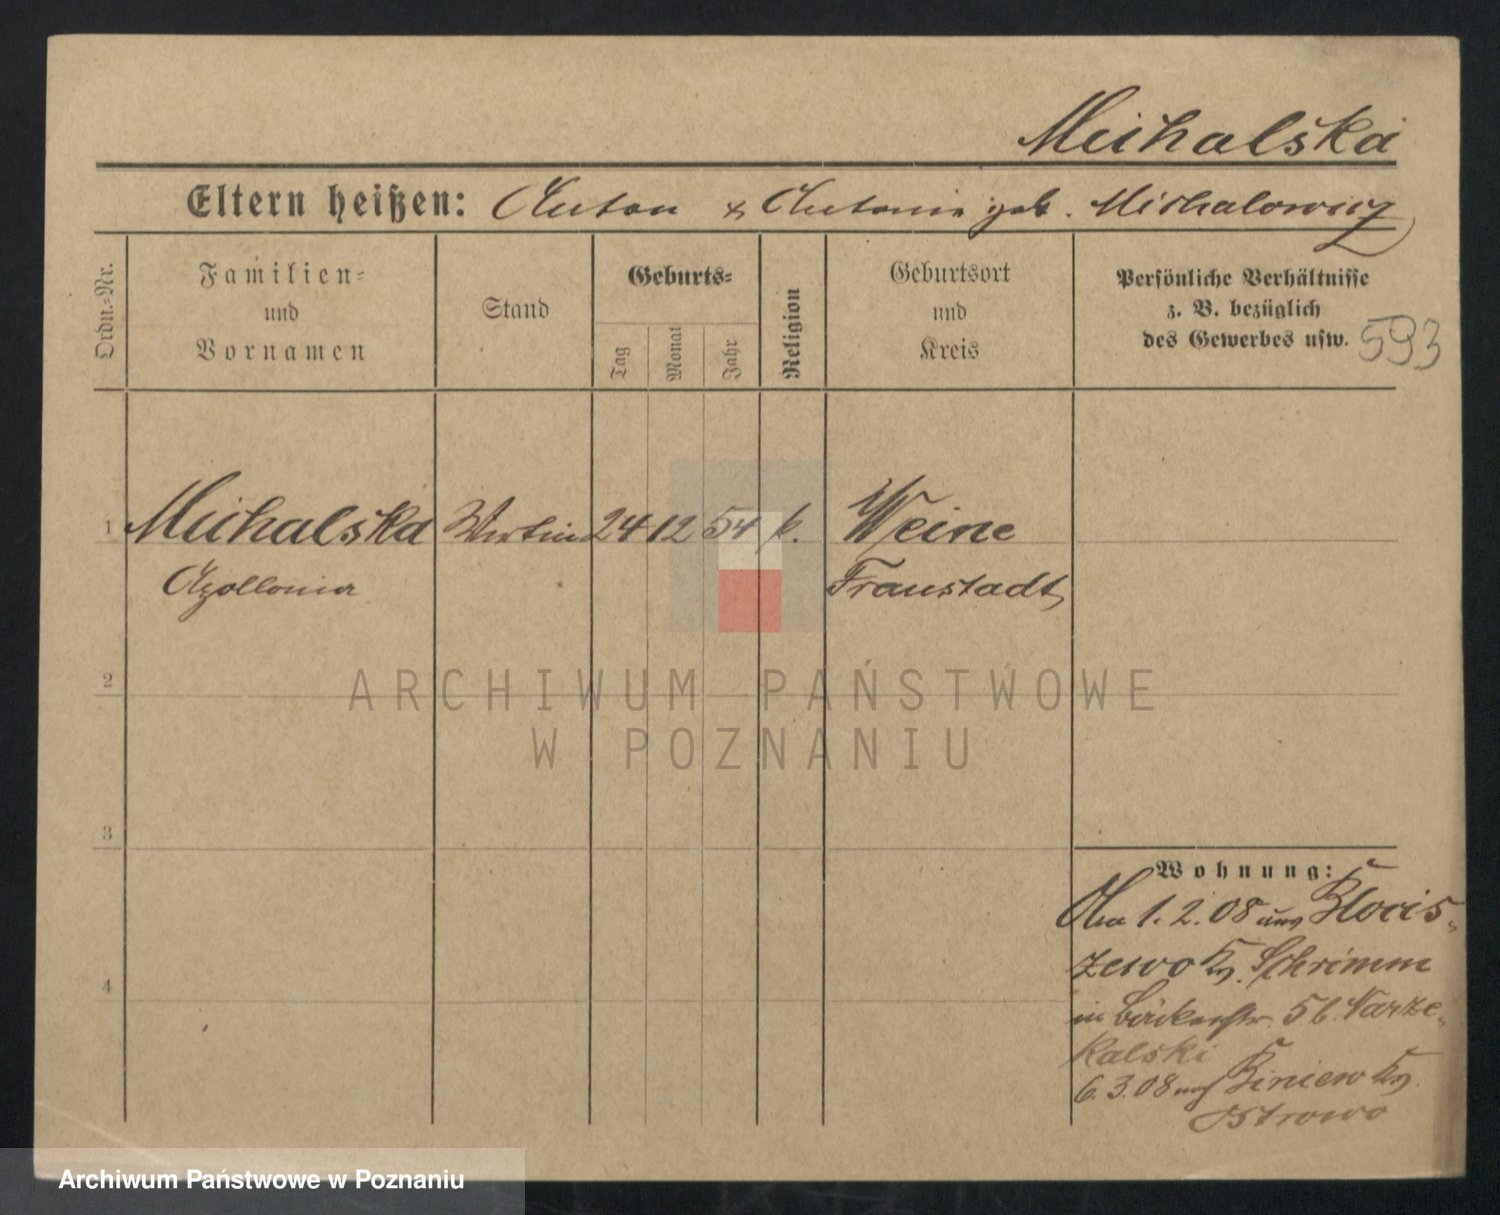 Michalska
Eltern heißen: Anton & Antonie geb. Michalowicz
Ordn.-Nr.
Familien-
und
Vornamen
Stand
Geburts-
Tag
Monat
Jahr
Religion
Geburtsort
und
Kreis
Persönliche Verhältnisse
z. B. bezüglich
des Gewerbes usw.
593
1 Michalska Wirtin 24 12 54 k. Weine
Apollonia Fraustadt
2
ARCHIWUM PAŃSTWOWE
W POZNANIU
3
Wohnung:
1.2.08 aus Wlocis-
zewo Kr. Schrimm
in Bäckerstr. 5b.
kalski
6.3.08 Kr.
Ostrowo
4
Archiwum Państwowe w Poznaniu